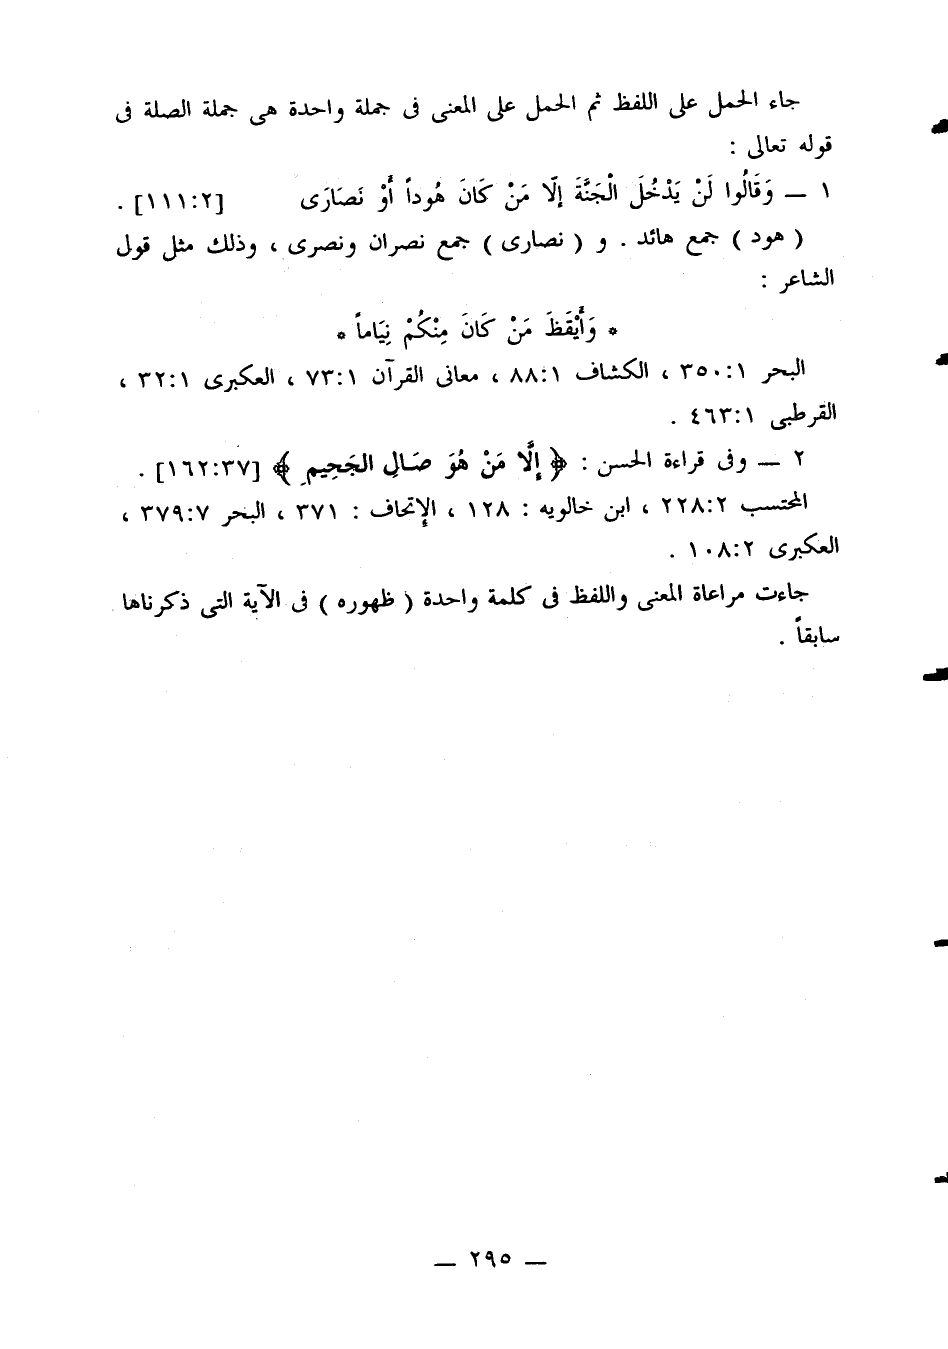 جاء الحمل على اللفظ ثم الحمل على المعنى فى جملة واحدة هى جملة الصلة فى
قوله تعالى :
١ ــ وَقَالُوا لَنْ يَدْخُلَ الْجَنَّةَ إلّا مَنْ كَانَ هُوداً أَوْ نَصَارَى [١١١:٢] .
( هود ) جمع هائد . و ( نصارى ) جمع نصران ونصرى ، وذلك مثل قول
الشاعر :
* وَأَيْقَظَ مَنْ كَانَ مِنْكُمْ نِيَاماً *
البحر ٣٥٠:١ ، الكشاف ٨٨:١ ، معانى القرآن ٧٣:١ ، العكبرى ٣٢:١ ،
القرطبى ٤٦٣:١ .
٢ ــ وفى قراءة الحسن : ﴿ إِلَّا مَنْ هُوَ صَالِ الجَحِيمِ ﴾ [١٦٢:٣٧] .
المحتسب ٢٢٨:٢ ، ابن خالويه : ١٢٨ ، الإتحاف : ٣٧١ ، البحر ٣٧٩:٧ ،
العكبرى ١٠٨:٢ .
جاءت مراعاة المعنى واللفظ فى كلمة واحدة ( ظهوره ) فى الآية التى ذكرناها
سابقاً .
ــ ٢٩٥ ــ